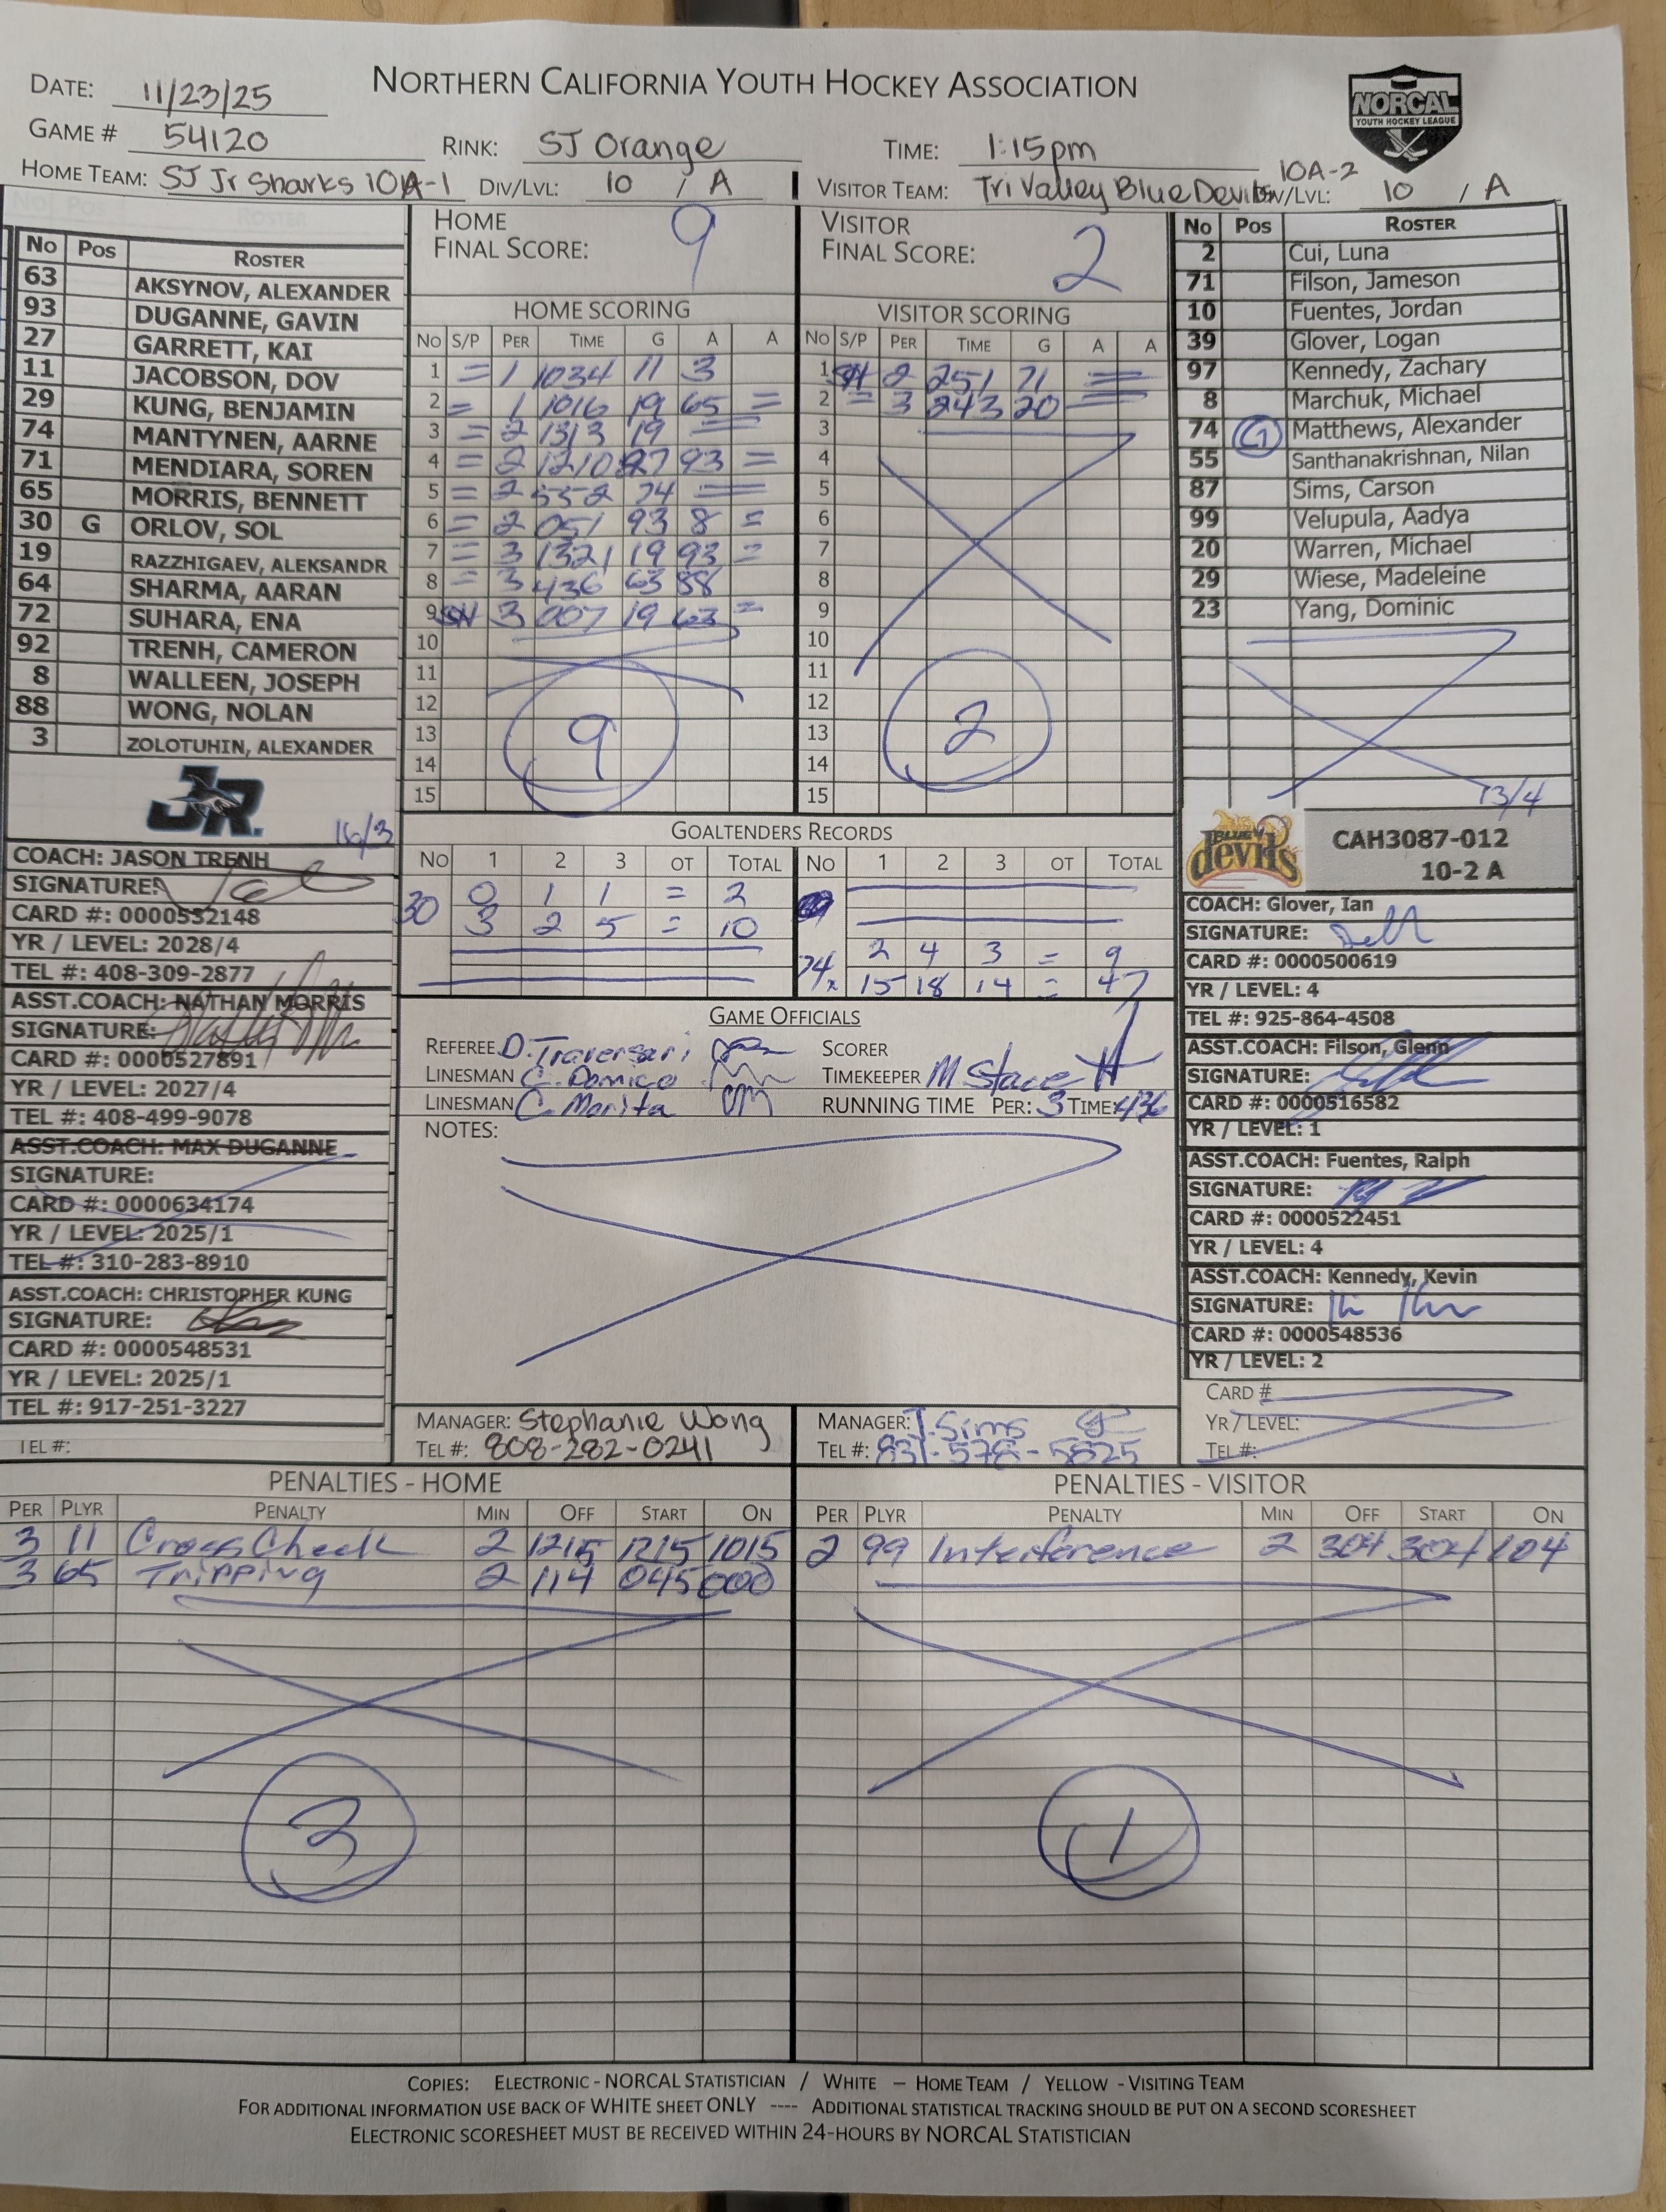 NORTHERN CALIFORNIA YOUTH HOCKEY ASSOCIATION
NORCAL
YOUTH HOCKEY LEAGUE
DATE: 11/23/25
GAME # 54120
RINK: SJ Orange
TIME: 1:15pm
HOME TEAM: SJ Jr Sharks 10A-1
DIV/LVL: 10 / A
VISITOR TEAM: Tri Valley Blue Devils 10A-2
DIV/LVL: 10 / A
No Pos ROSTER
63 AKSYNOV, ALEXANDER
93 DUGANNE, GAVIN
27 GARRETT, KAI
11 JACOBSON, DOV
29 KUNG, BENJAMIN
74 MANTYNEN, AARNE
71 MENDIARA, SOREN
65 MORRIS, BENNETT
30 G ORLOV, SOL
19 RAZZHIGAEV, ALEKSANDR
64 SHARMA, AARAN
72 SUHARA, ENA
92 TRENH, CAMERON
8 WALLEEN, JOSEPH
88 WONG, NOLAN
3 ZOLOTUHIN, ALEXANDER
JR.
16/3
COACH: JASON TRENH
SIGNATURE:
CARD #: 0000552148
YR / LEVEL: 2028/4
TEL #: 408-309-2877
ASST.COACH: NATHAN MORRIS
SIGNATURE:
CARD #: 0000527891
YR / LEVEL: 2027/4
TEL #: 408-499-9078
ASST.COACH: MAX DUGANNE
SIGNATURE:
CARD #: 0000634174
YR / LEVEL: 2025/1
TEL #: 310-283-8910
ASST.COACH: CHRISTOPHER KUNG
SIGNATURE:
CARD #: 0000548531
YR / LEVEL: 2025/1
TEL #: 917-251-3227
TEL #:
HOME
FINAL SCORE: 9
HOME SCORING
NO S/P PER TIME G A A
1 = 1 1034 11 3
2 = 1 1016 19 65 =
3 = 2 1313 19 =
4 = 2 1210 27 93 =
5 = 2 552 74 =
6 = 2 051 93 8 =
7 = 3 1321 19 93 =
8 = 3 436 63 88
9 SH 3 007 19 63 =
10
11
12
13
14
15
9
VISITOR
FINAL SCORE: 2
VISITOR SCORING
NO S/P PER TIME G A A
1 SH 2 251 71 =
2 = 3 243 20 =
3
4
5
6
7
8
9
10
11
12
13
14
15
2
No Pos ROSTER
2 Cui, Luna
71 Filson, Jameson
10 Fuentes, Jordan
39 Glover, Logan
97 Kennedy, Zachary
8 Marchuk, Michael
74 G Matthews, Alexander
55 Santhanakrishnan, Nilan
87 Sims, Carson
99 Velupula, Aadya
20 Warren, Michael
29 Wiese, Madeleine
23 Yang, Dominic
13/4
BLUE devils
CAH3087-012
10-2 A
COACH: Glover, Ian
SIGNATURE:
CARD #: 0000500619
YR / LEVEL: 4
TEL #: 925-864-4508
ASST.COACH: Filson, Glenn
SIGNATURE:
CARD #: 0000516582
YR / LEVEL: 1
ASST.COACH: Fuentes, Ralph
SIGNATURE:
CARD #: 0000522451
YR / LEVEL: 4
ASST.COACH: Kennedy, Kevin
SIGNATURE:
CARD #: 0000548536
YR / LEVEL: 2
CARD #
YR / LEVEL:
TEL #:
GOALTENDERS RECORDS
NO 1 2 3 OT TOTAL
30 0 1 1 = 2
3 2 5 = 10
NO 1 2 3 OT TOTAL
74 2 4 3 = 9
15 18 14 = 47
GAME OFFICIALS
REFEREE D. Traversari
LINESMAN C. Domico
LINESMAN C. Morita
SCORER
TIMEKEEPER M Stace
RUNNING TIME PER: 3 TIME: 436
NOTES:
MANAGER: Stephanie Wong
TEL #: 808-282-0241
MANAGER: J. Sims
TEL #: 831-578-5825
PENALTIES - HOME
PER PLYR PENALTY MIN OFF START ON
3 11 Cross Check 2 1215 1215 1015
3 65 Tripping 2 114 045 000
PENALTIES - VISITOR
PER PLYR PENALTY MIN OFF START ON
2 99 Interference 2 304 304 104
1
COPIES: ELECTRONIC - NORCAL STATISTICIAN / WHITE – HOME TEAM / YELLOW - VISITING TEAM
FOR ADDITIONAL INFORMATION USE BACK OF WHITE SHEET ONLY ---- ADDITIONAL STATISTICAL TRACKING SHOULD BE PUT ON A SECOND SCORESHEET
ELECTRONIC SCORESHEET MUST BE RECEIVED WITHIN 24-HOURS BY NORCAL STATISTICIAN